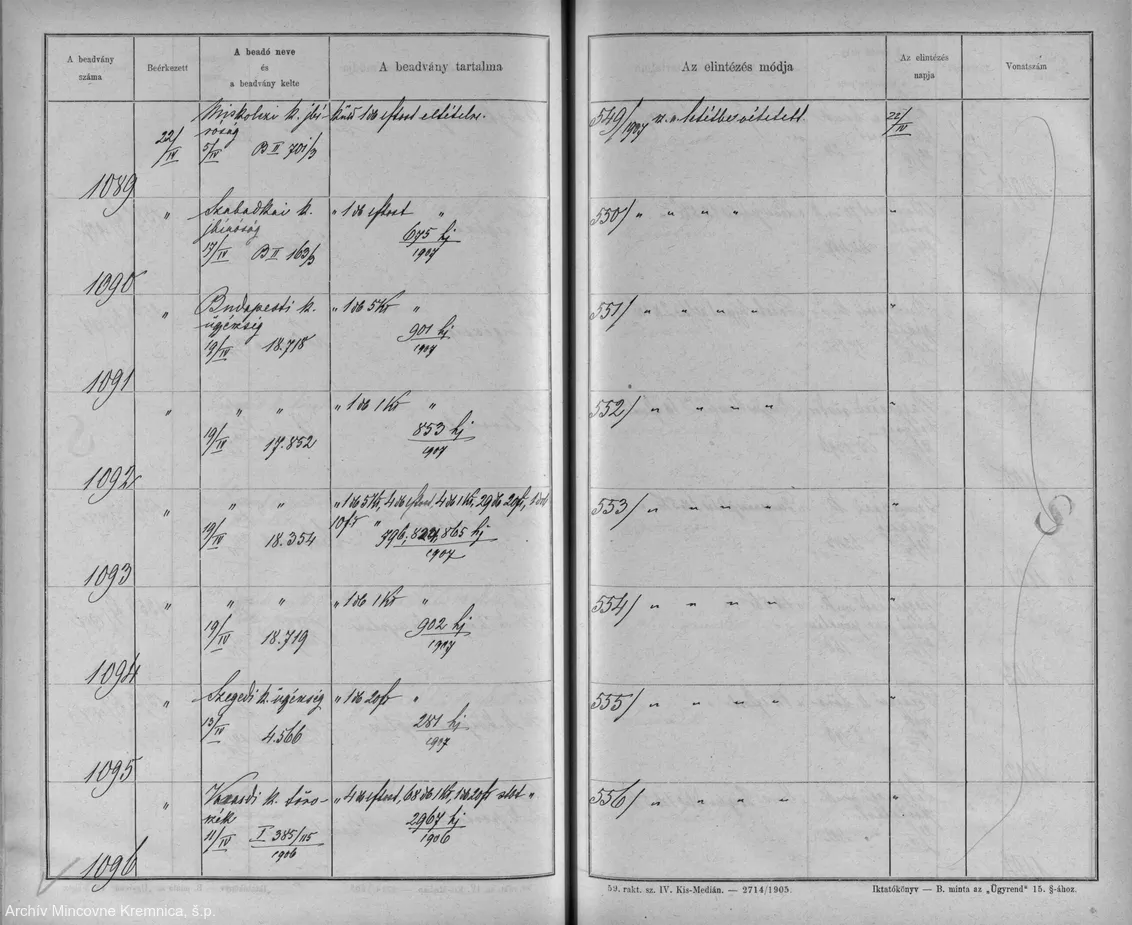 A beadvány
száma
Beérkezett
A beadó neve
és
a beadvány kelte
A beadvány tartalma
Az elintézés módja
Az elintézés
napja
Vonatszám
1089
22/IV
Miskolczi k. jbí-
róság
5/IV B II 701/3
küld 1 db eftost eltételre.
549/1907 sz. a letétbe vétetett
22/IV
1090
"
Szabadkai k.
jbíróság
17/IV B II 163/3
" 1 db eftost "
675 hj
1907
550/ " " " "
"
1091
"
Budapesti k.
ügészség
19/IV 18.718
" 1 db 5 Kr "
901 hj
1907
551/ " " " "
"
1092
"
" "
19/IV 17.852
" 1 db 1 Kr "
853 hj
1907
552/ " " " "
"
1093
"
" "
19/IV 18.354
" 1 db 5 Kr, 4 db eftost, 4 db 1 Kr, 29 db 20 fr, 1 db
10 fr "
796, 865 hj
1907
553/ " " " "
"
1094
"
" "
19/IV 18.719
" 1 db 1 Kr "
902 hj
1907
554/ " " " "
"
1095
"
Szegedi k. ügészség
13/IV 4.566
" 1 db 20 fr "
281 hj
1907
555/ " " " "
"
1096
"
k. törv-
szék
11/IV I 385/115
1906
" 4 db eftost, 68 db 1 Kr, 1 db 20 fr "
2967 hj
1906
556/ " " " "
"
59. rakt. sz. IV. Kis-Medián. — 2714/1905.
Iktatókönyv — B. minta az „Ügyrend" 15. §-ához.
Archív Mincovne Kremnica, š.p.